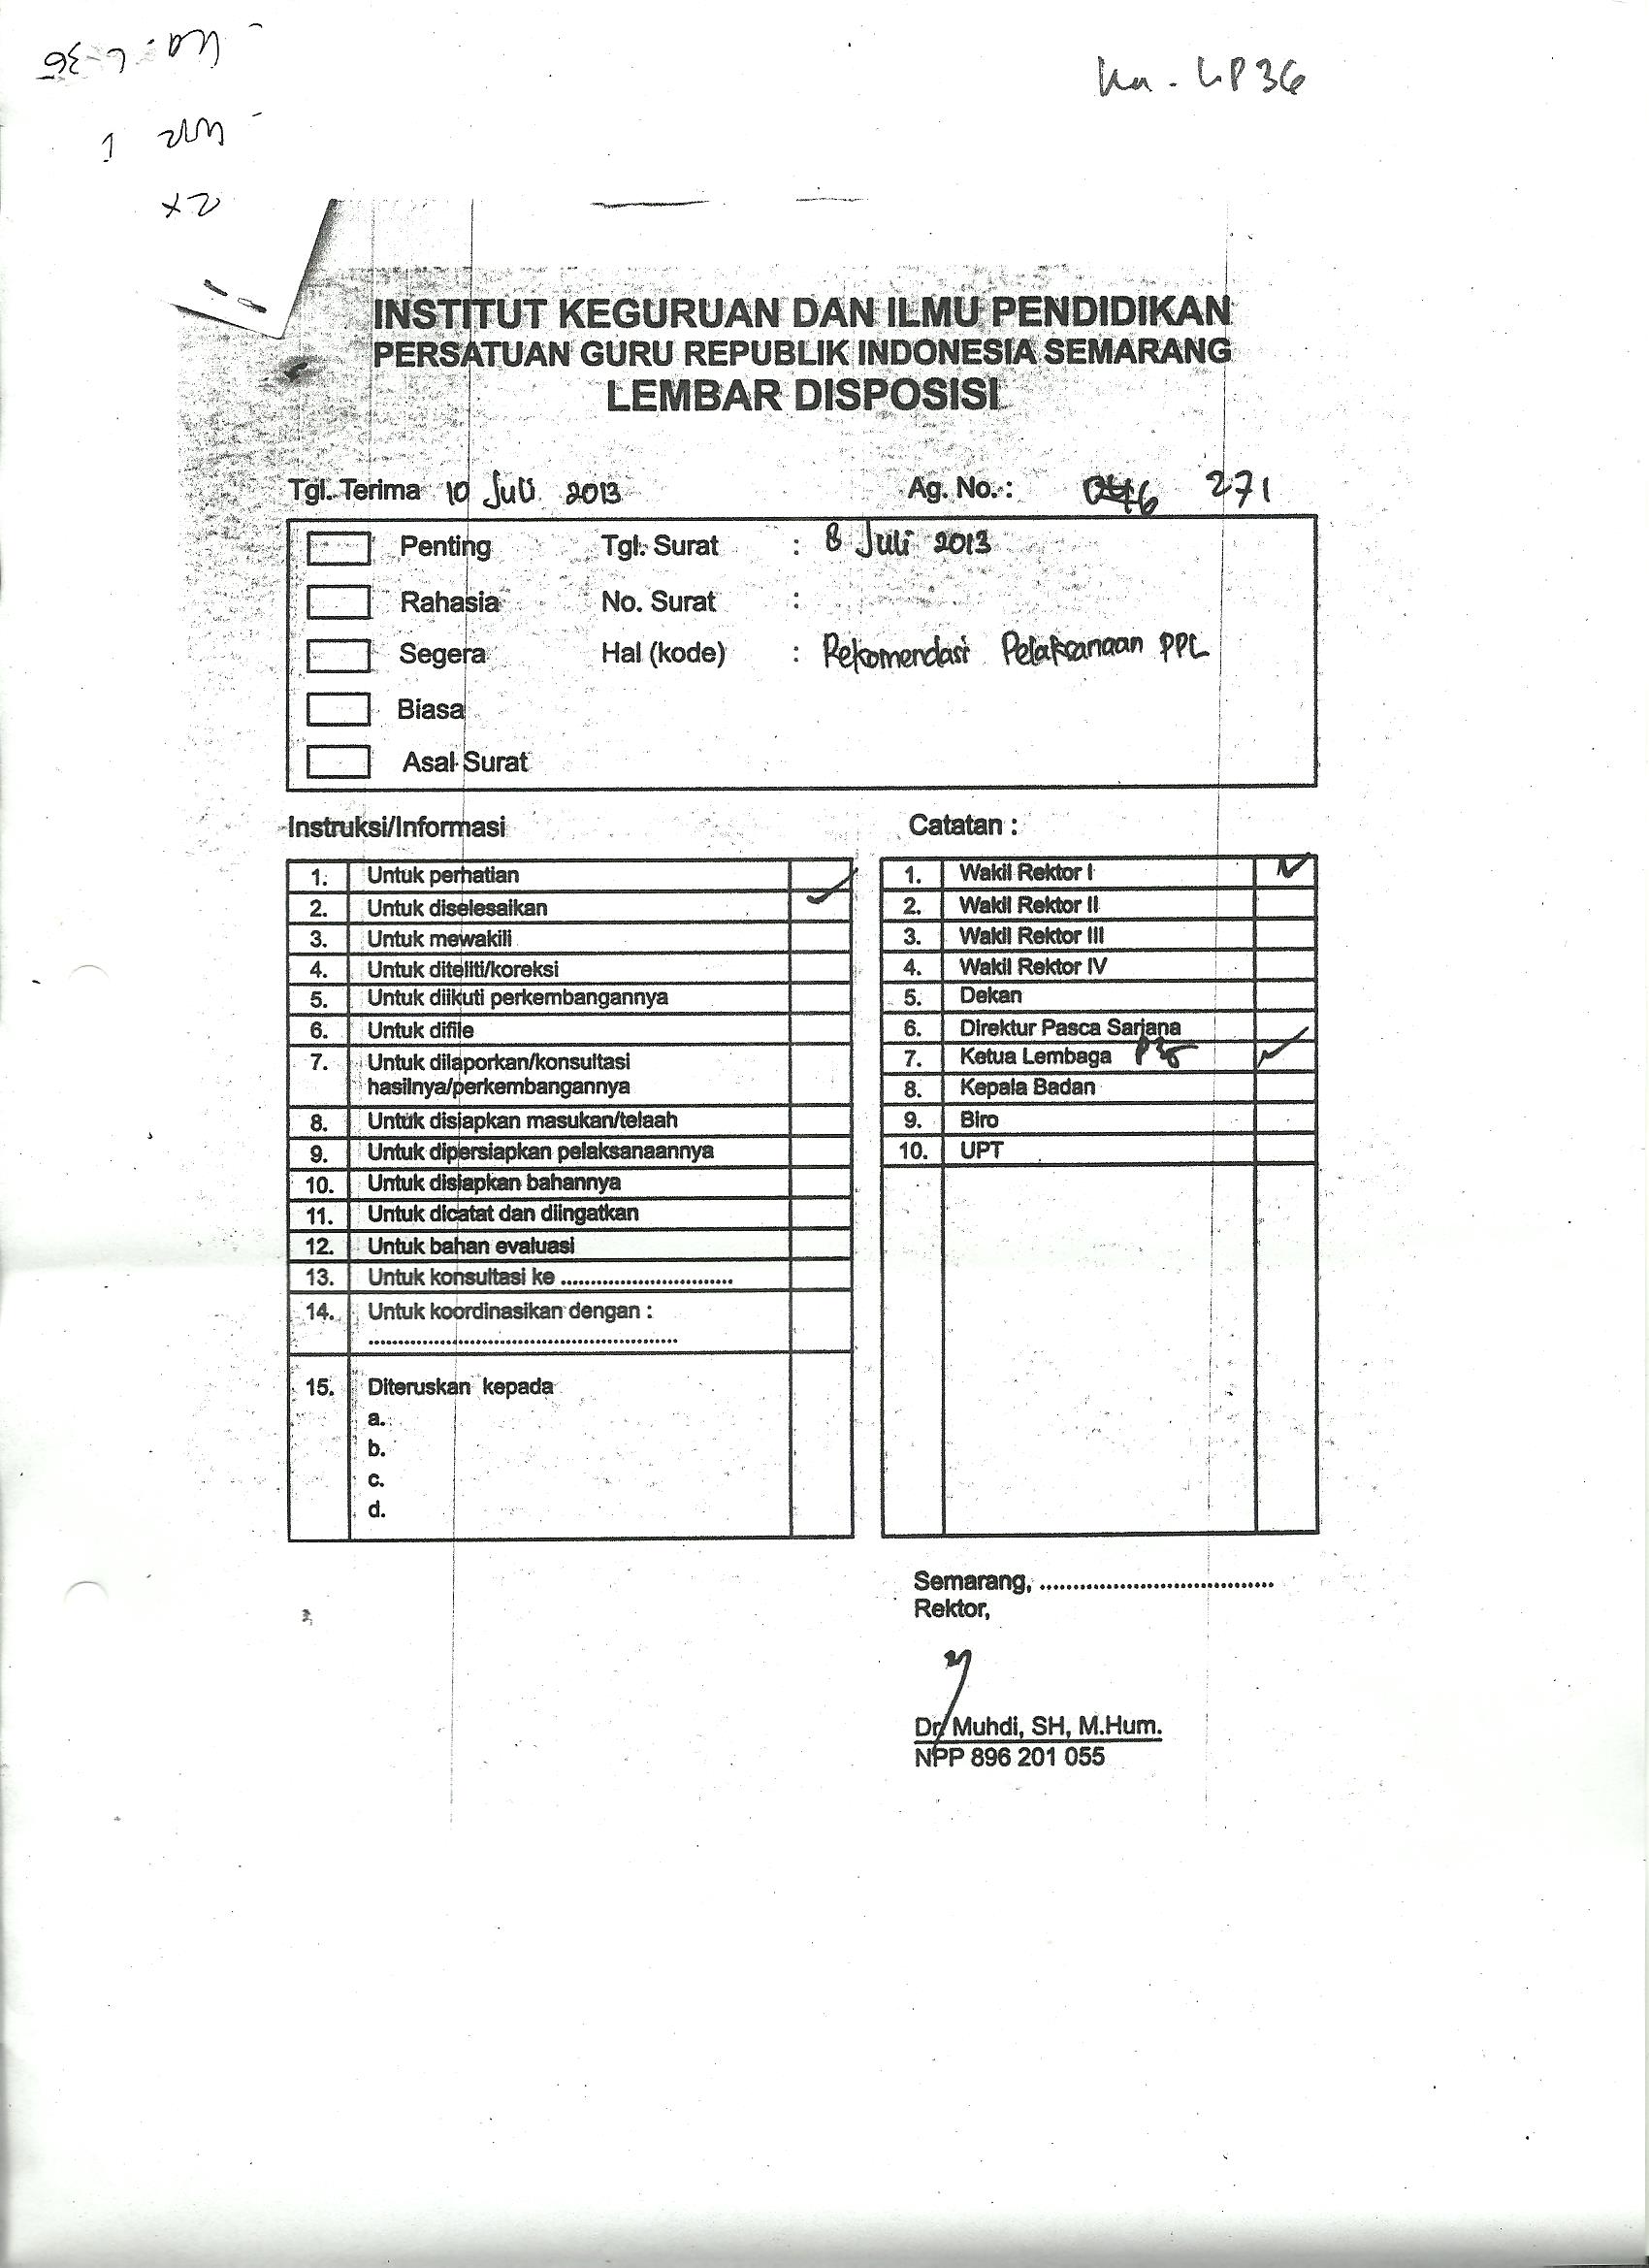 Ka - LP36
INSTITUT KEGURUAN DAN ILMU PENDIDIKAN
PERSATUAN GURU REPUBLIK INDONESIA SEMARANG
LEMBAR DISPOSISI
Tgl. Terima 10 Juli 2013 Ag. No. : 271
Penting Tgl. Surat : 8 Juli 2013
Rahasia No. Surat :
Segera Hal (kode) : Rekomendasi Pelaksanaan PPL
Biasa
Asal Surat
Instruksi/Informasi
1. Untuk perhatian
2. Untuk diselesaikan
3. Untuk mewakili
4. Untuk diteliti/koreksi
5. Untuk diikuti perkembangannya
6. Untuk difile
7. Untuk dilaporkan/konsultasi
hasilnya/perkembangannya
8. Untuk disiapkan masukan/telaah
9. Untuk dipersiapkan pelaksanaannya
10. Untuk disiapkan bahannya
11. Untuk dicatat dan diingatkan
12. Untuk bahan evaluasi
13. Untuk konsultasi ke ..............................
14. Untuk koordinasikan dengan :
......................................................
15. Diteruskan kepada
a.
b.
c.
d.
Catatan :
1. Wakil Rektor I
2. Wakil Rektor II
3. Wakil Rektor III
4. Wakil Rektor IV
5. Dekan
6. Direktur Pasca Sarjana
7. Ketua Lembaga P3G
8. Kepala Badan
9. Biro
10. UPT
Semarang, ...................................
Rektor,
Dr. Muhdi, SH, M.Hum.
NPP 896 201 055